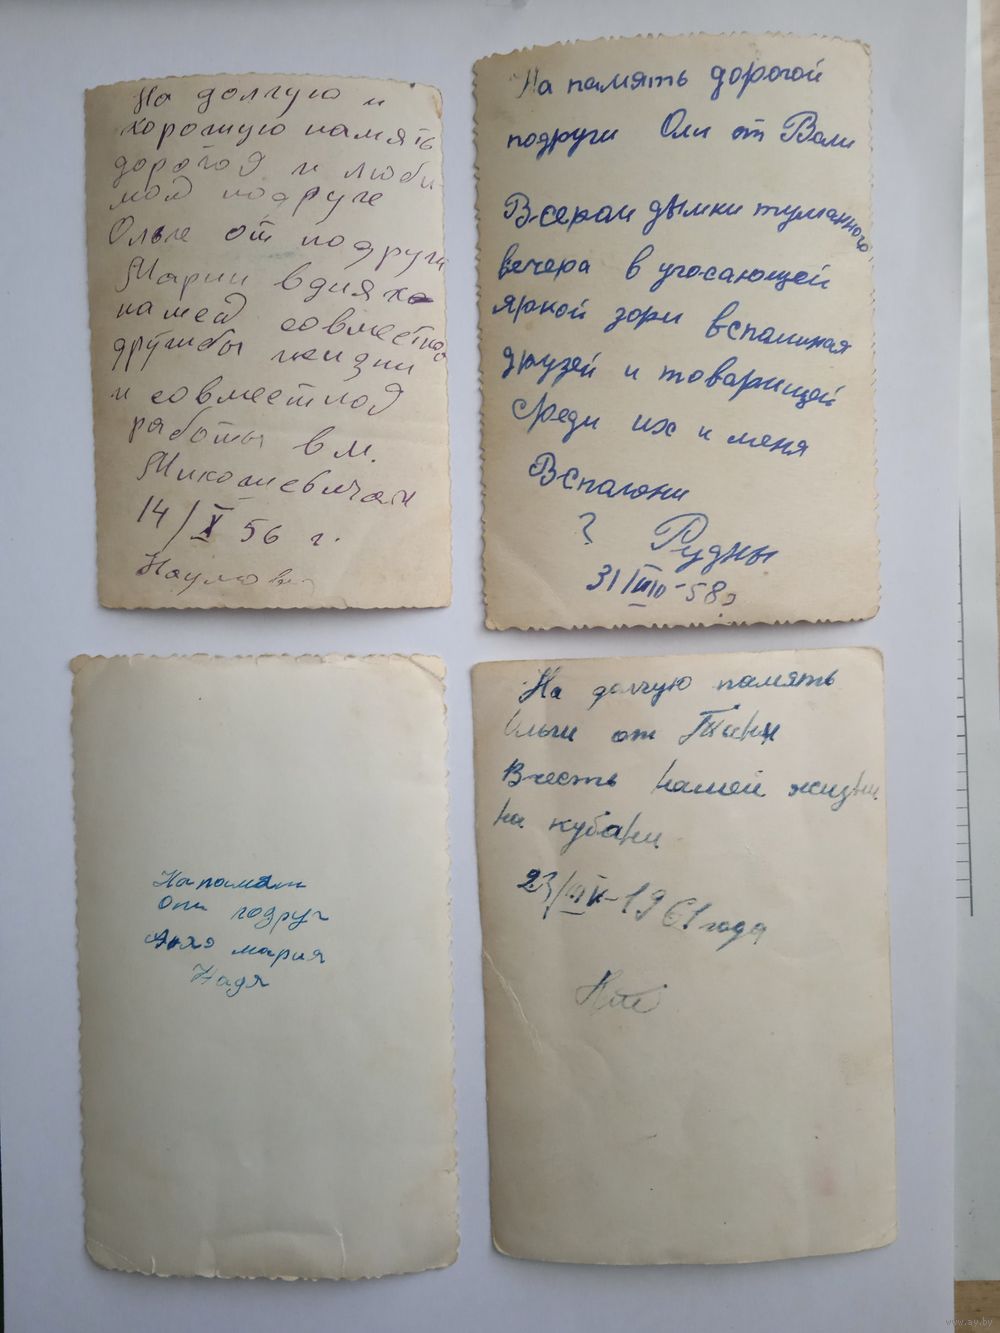 На долгую и
хорошую память
дорогой и люби-
мой подруге
Ольге от подруги
Марии в днях
нашей совместной
дружбы жизни
и совместной
работы в м.
Микошевичах
14/X 56 г.
На память дорогой
подруги Оли от Вали
В серои дымки туманного
вечера в угосающей
яркой зори вспоминая
друзей и товарищей
среди их и меня
Вспомни
? Рудны
58г
На памят
от подруг
мария
Надя
На долгую память
Ольги от Тани
В честь нашей жизни
на кубани
23/ 1961 года
www.ay.by